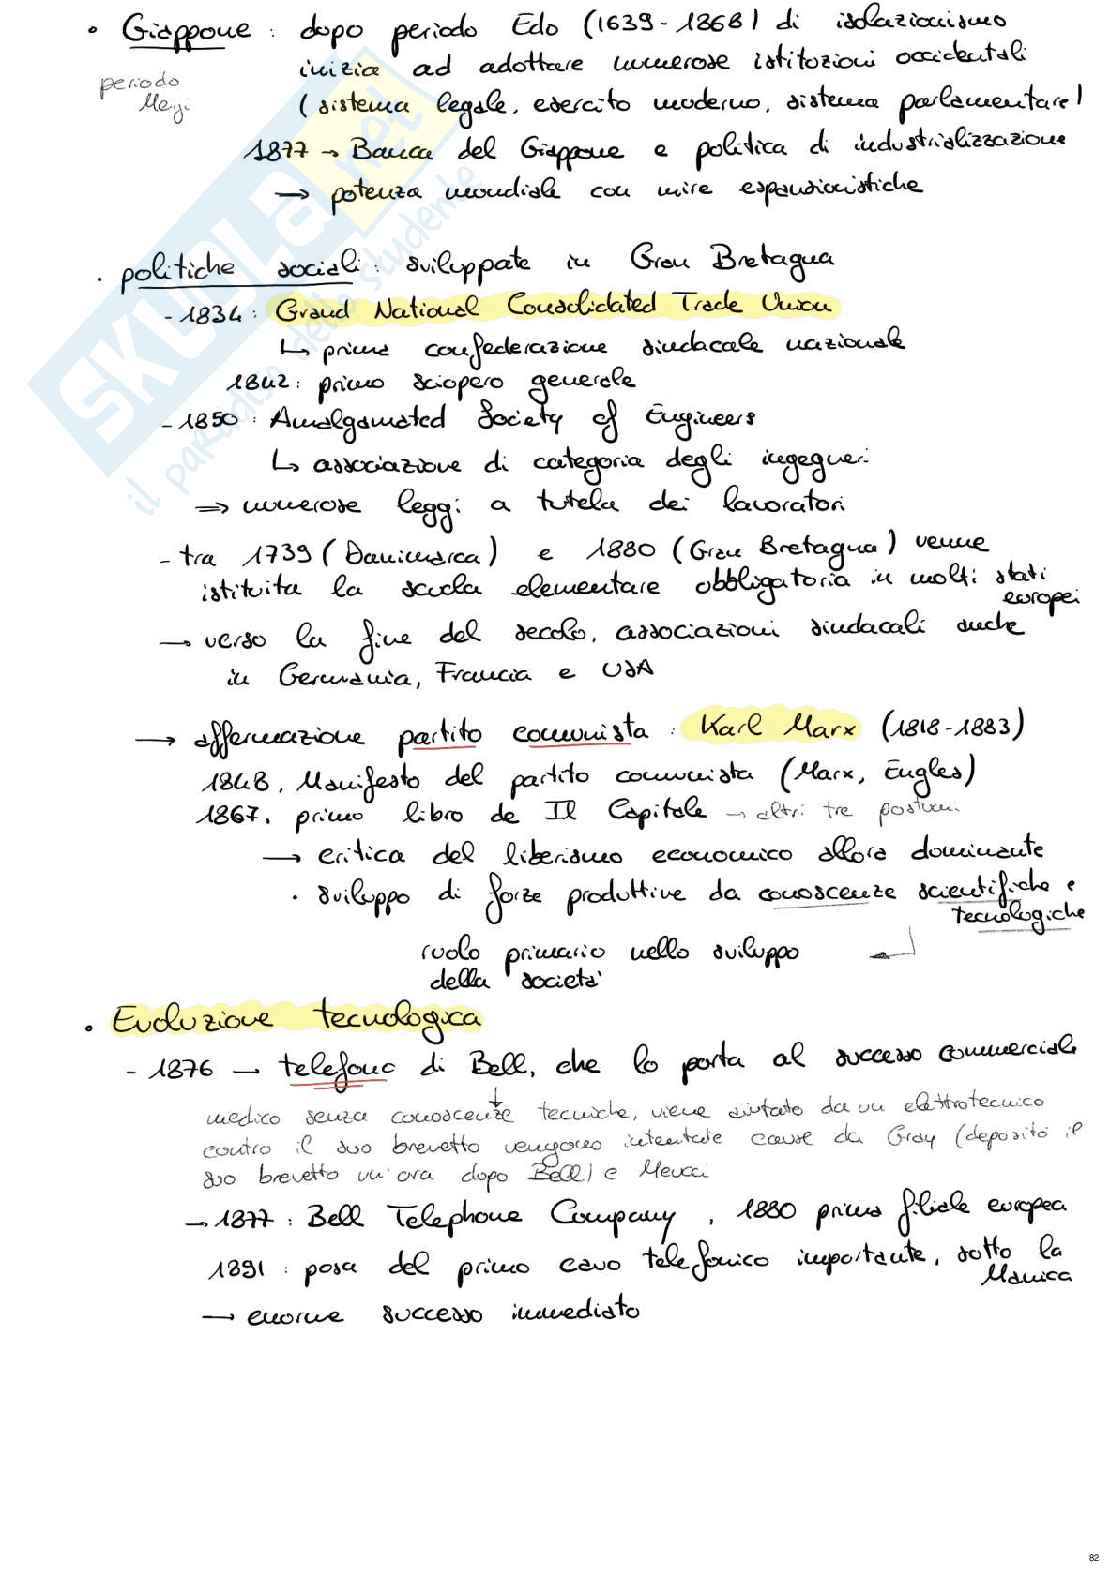 • Giappone : dopo periodo Edo (1639-1868) di isolazionismo
inizia ad adottare numerose istituzioni occidentali
periodo
Meiji
(sistema legale, esercito moderno, sistema parlamentare)
1877 → Banca del Giappone e politica di industrializzazione
→ potenza mondiale con mire espansionistiche
· politiche sociali : sviluppate in Gran Bretagna
- 1834 : Grand National Consolidated Trade Union
↳ prima confederazione sindacale nazionale
1842 : primo sciopero generale
- 1850 : Amalgamated Society of Engineers
↳ associazione di categoria degli ingegneri
⇒ numerose leggi a tutela dei lavoratori
- tra 1739 (Danimarca) e 1880 (Gran Bretagna) venne
istituita la scuola elementare obbligatoria in molti stati
europei
→ verso la fine del secolo, associazioni sindacali anche
in Germania, Francia e USA
→ affermazione partito comunista : Karl Marx (1818-1883)
1848, Manifesto del partito comunista (Marx, Engles)
1867, primo libro de Il Capitale → altri tre postumi
→ critica del liberismo economico allora dominante
· sviluppo di forze produttive da conoscenze scientifiche e
tecnologiche
ruolo primario nello sviluppo
della società
• Evoluzione tecnologica
- 1876 → telefono di Bell, che lo porta al successo commerciale
medico senza conoscenze tecniche, viene aiutato da un elettrotecnico
contro il suo brevetto vengono intentate cause da Gray (depositò il
suo brevetto un'ora dopo Bell) e Meucci
→ 1877 : Bell Telephone Company, 1880 prima filiale europea
1891 : posa del primo cavo telefonico importante, sotto la
Manica
→ enorme successo immediato
SKUOLA.net
il paradiso dello studente
82